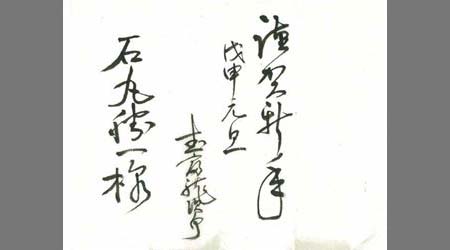 謹賀新年
戊申元旦
石丸勝一様